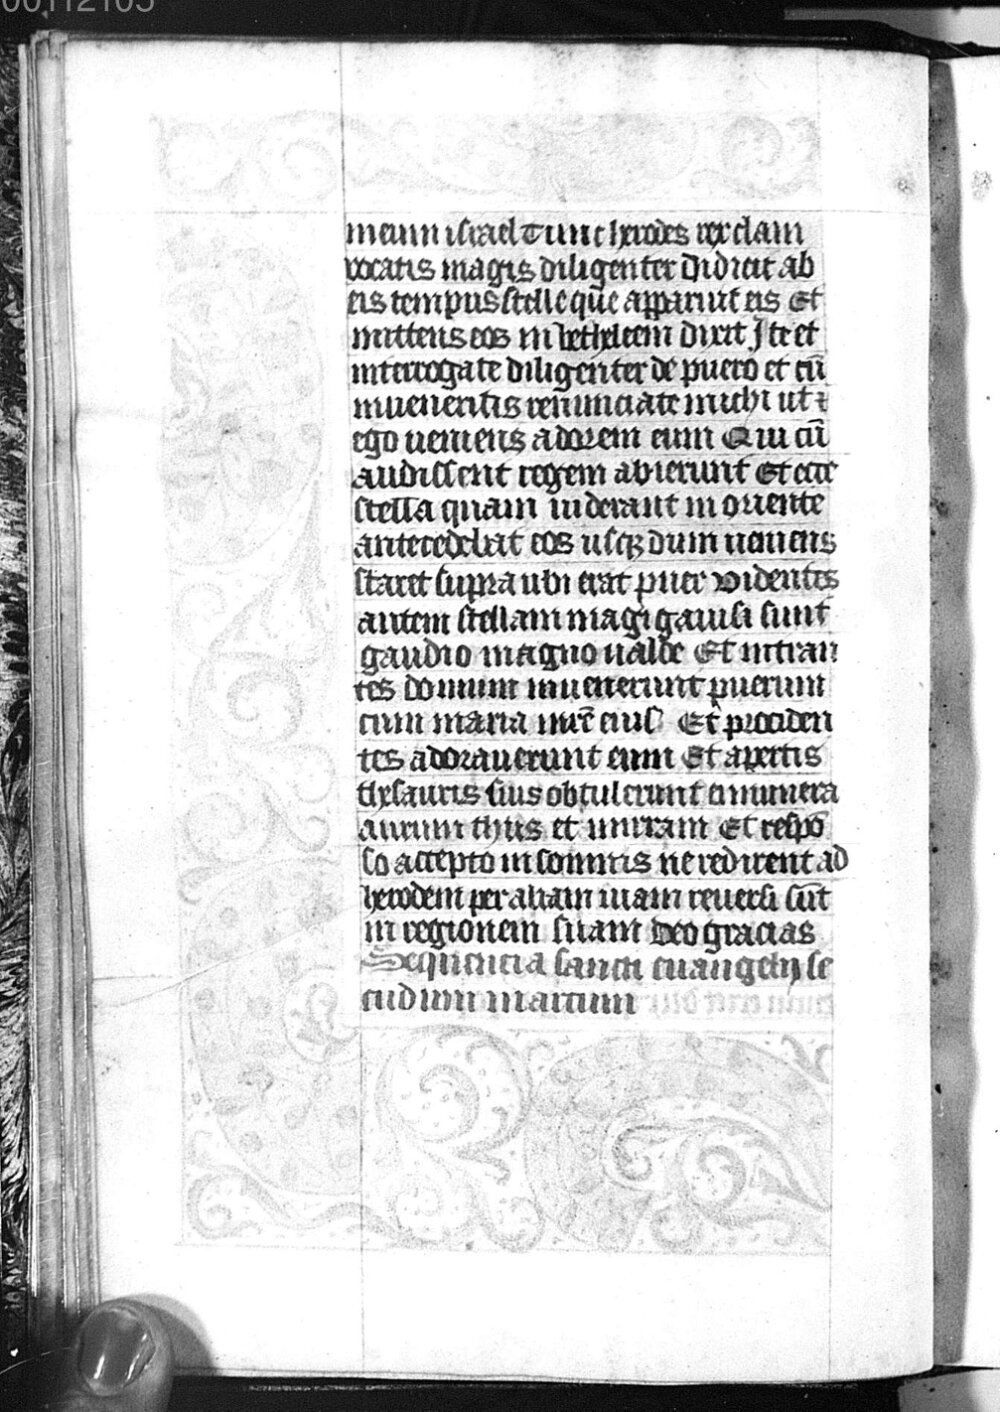 00112105
meum israel Tunc herodes rex clam
vocatis magis diligenter didicit ab
eis tempus stelle que apparuit eis Et
mittens eos in bethleem dixit Ite et
interrogate diligenter de puero et cū
inueneritis renunciate michi ut ⁊
ego ueniens adorem eum Qui cū
audissent regem abierunt Et ecce
stella quam uiderant in oriente
antecedebat eos usqꝫ dum ueniens
staret supra ubi erat puer Videntes
autem stellam magi gauisi sunt
gaudio magno ualde Et intran
tes domum inuenerunt puerum
cum maria mr̄e eius Et prociden
tes adorauerunt eum Et apertis
thesauris suis obtulerunt ei munera
aurum thus et mirram Et respō
so accepto in somnis ne redirent ad
herodem per aliam uiam reuersi sūt
in regionem suam Deo gracias
Sequencia sancti euangelij se
cudium marcum